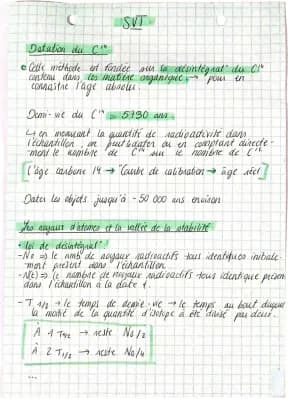 SVT
Datation du C¹⁴
• Cette méthode est fondée sur la désintégrat° du C¹⁴
contenu dans les matière organique, → pour en
connaître l'âge absolu.
Demi-vie du C¹⁴ = 5730 ans.
↳ en mesurant la quantité de radioactivité dans
l'échantillon, on peut dater ou en comptant directe-
-ment le nombre de C¹⁴ sur le nombre de C¹²
[L'âge carbone 14 → "Courbe de calibration → âge réel]
Dater les objets jusqu'à -50 000 ans environ
Les noyaux d'atomes et la vallée de la stabilité
• loi de désintégrat°
- No ⇒ le nmb de noyaux radioactifs tous identiques initiale-
-ment présent dans l'échantillon.
- N(t) ⇒ le nombre de noyaux radioactifs tous identique présent
dans l'échantillon à la date t.
- T 1/2 → le temps de demie-vie → le temps au bout duquel
la moitié de la quantité d'isotope a été divisé par deux.
À 1 T1/2 → reste No/2
À 2 T1/2 → reste No/4
...